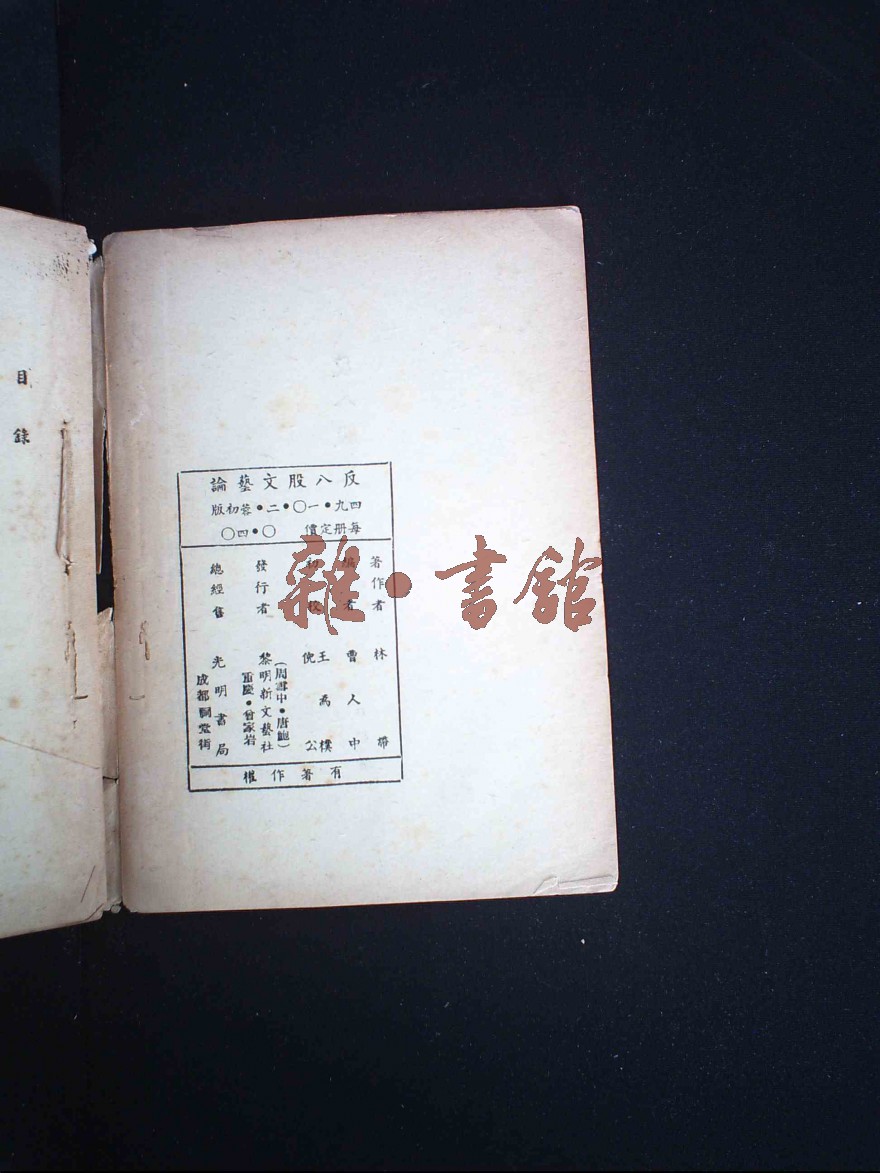 反八股文藝論
四九•一〇•二•蓉初版
每册定價 〇•四〇
著作者 林
編者 曹人中
初校 王爲樸 倪公
發行者 黎明新文藝社
(周雪中•唐
重慶•曾家岩
總經售 光明書局
成都祠堂街
有著作權
目錄
雜•書館